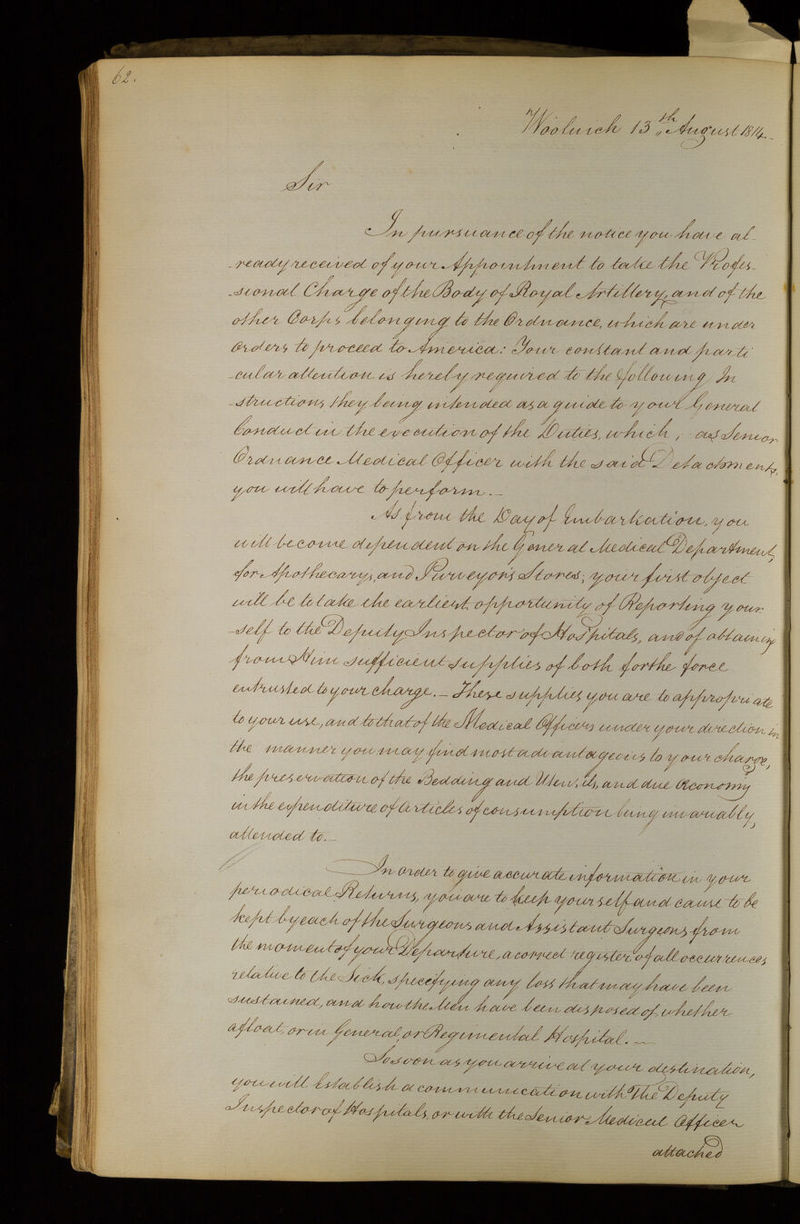 62.
Woolwich 13th August 1814.
Sir
In pursuance of the notice you have al-
-ready received of your Appointment to take the Profes-
-sional Charge of the Body of Royal Artillery, and of the
other Corps belonging to the Ordnance, which are under
Orders to proceed to America: Your constant and parti
-cular attention is hereby required to the following In
-structions, they being intended as a guide to your General
Conduct in the execution of the Duties, which, as Senior
Ordnance Medical Officer with the said Detachment,
you will have to perform. _
As from the Day of Embarkation, you
will become dependent on the General Medical Department
for Apothecarys, and Purveyors Stores, your first object
will be to take the earliest opportunity of Reporting your
-self to the Deputy Inspector of Hospitals, and of obtaining
from Him sufficient supplies of both for the force
entrusted to your charge. _ These supplies you are to appropriate
to your use, and to that of the Medical Officers under your direction in
the manner you may find most advantageous to your charge,
the preservation of the Bedding and Utensils, and due Œconomy
in the expenditure of Articles of consumption being invariably
attended to. _
In order to give accurate information in your
periodical Returns, you are to keep yourself and cause to be
kept by each of the Surgeons and Assistant Surgeons from
the moment of your Departure, a correct register of all occurrences
relative to the Sick, specifying any loss that may have been
sustained, and how the Men have been disposed of, whether
afloat, or in General, or Regimental Hospital. _
So soon as you arrive at your destination,
you will Establish a communication with The Deputy
Inspector of Hospitals, or with the Senior Medical Officer
attached